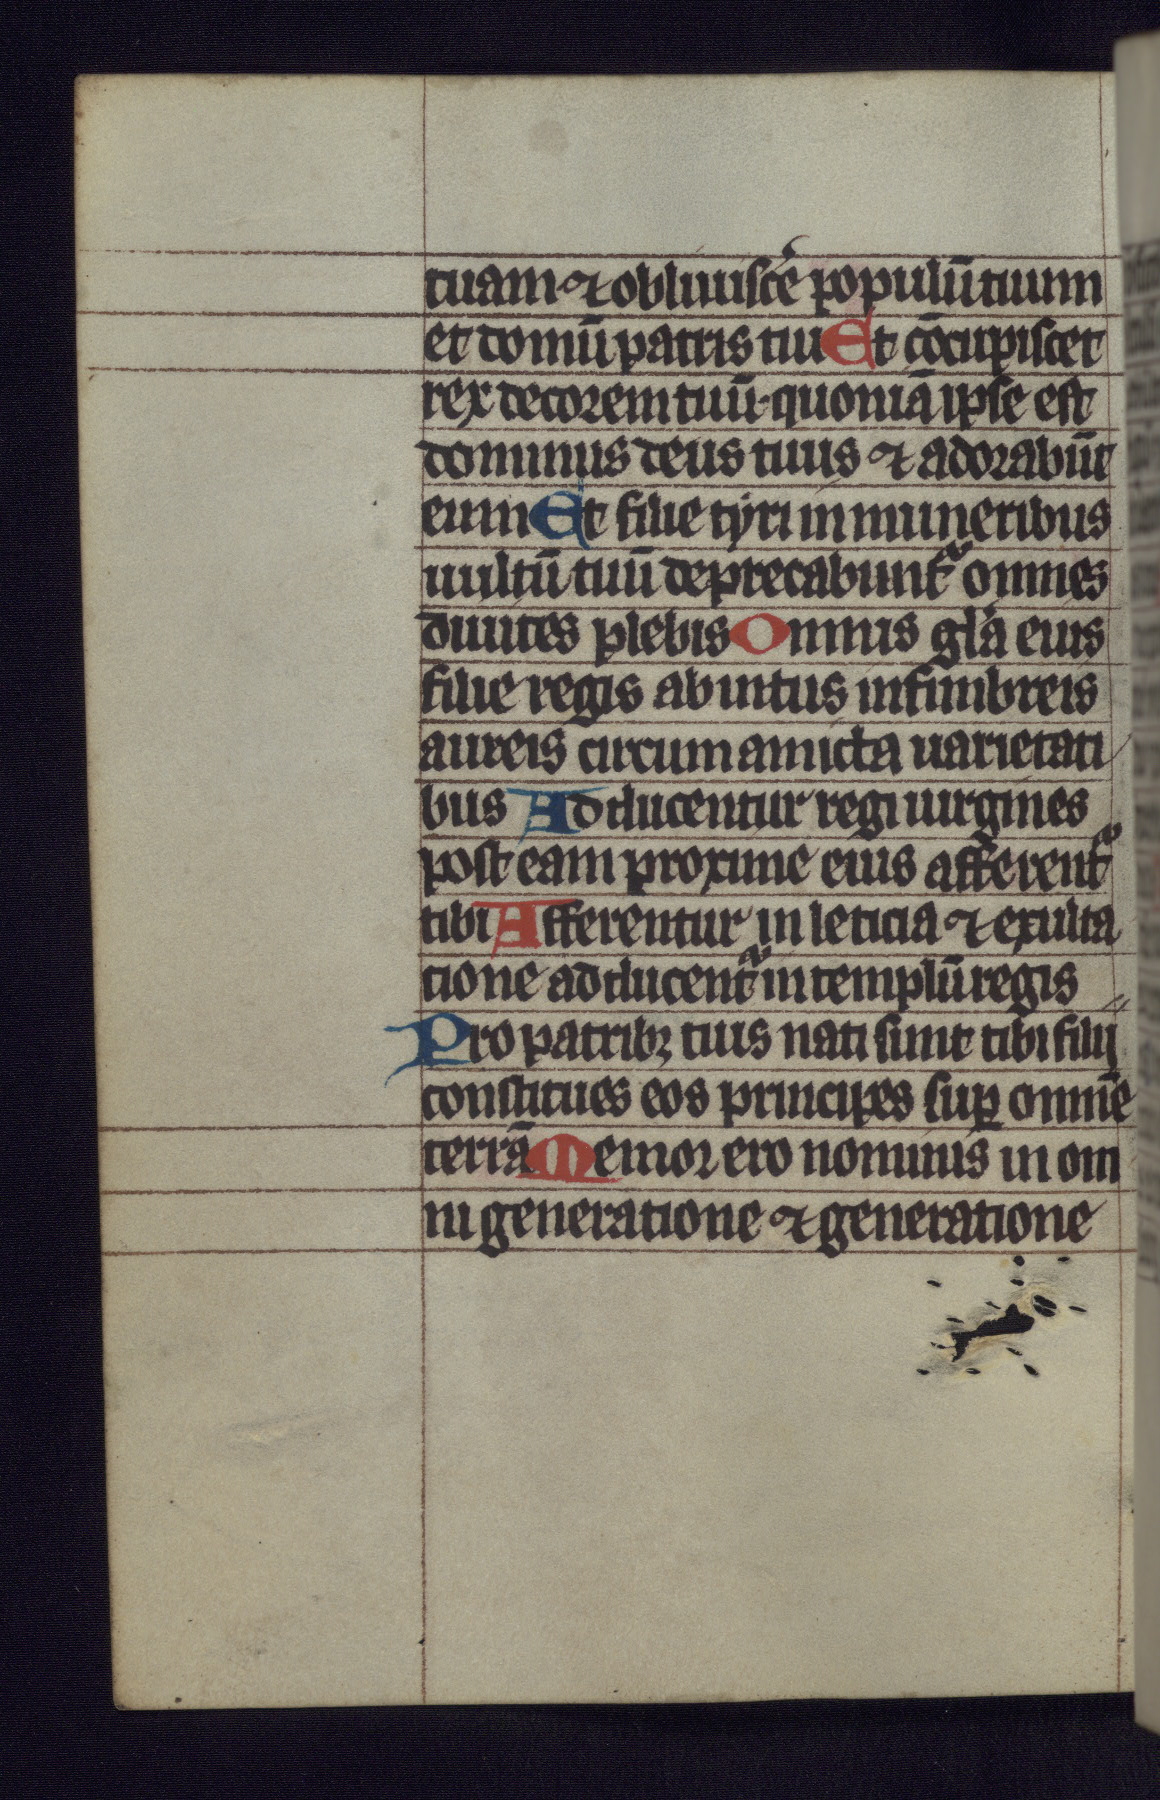 tuam ⁊ obliuiscẽ populũ tuum
et domũ patris tui Et cõcupiscet
rex decorem tuũ· quoniã ipse est
dominus deus tuus ⁊ adorabũt
eum Et filie tyri in muneribus
uultũ tuũ deprecabuntᷣ omnes
diuites plebis Omnis gl̃a eius
filie regis ab intus in fimbreis
aureis circumamicta uarietati
bus Adducentur regi uirgines
post eam proxime eius afferentᷣ
tibi Afferentur in leticia ⁊ exulta
tione adducentᷣ in templũ regis
Pro patribꝫ tuis nati sunt tibi filij
constitues eos principes suꝑ omnẽ
terrã Memor ero nominis in om
ni generatione ⁊ generatione